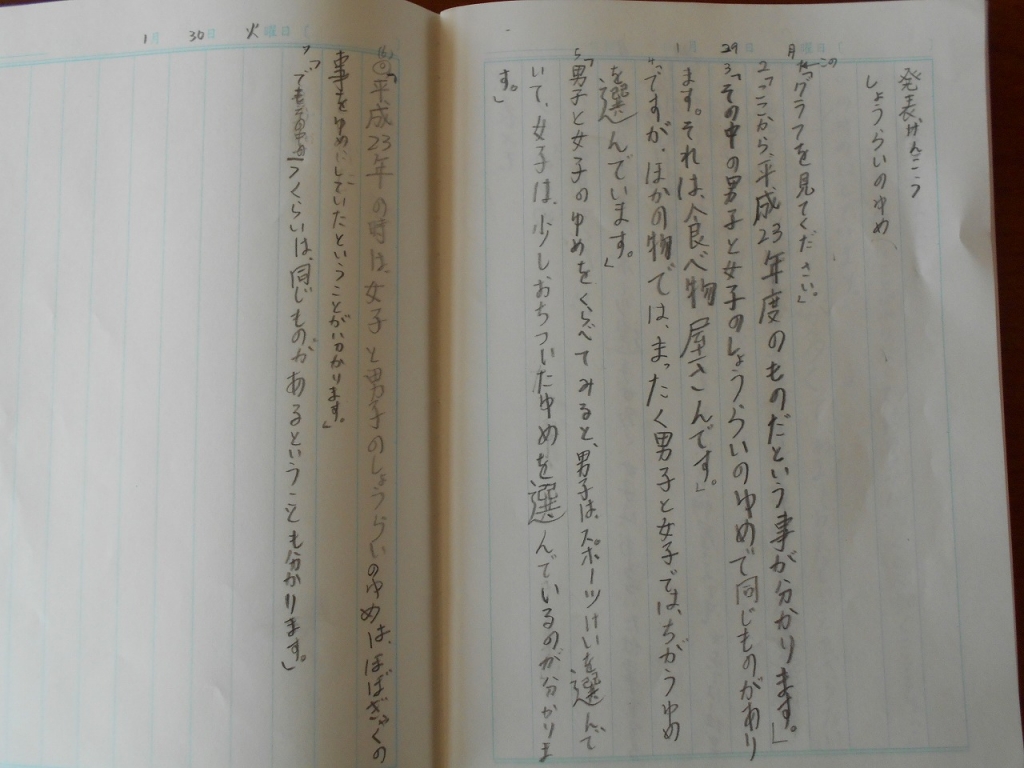 発表げんこう
しょうらいのゆめ
1「このグラフを見てください。」
2「ここから、平成23年度のものだという事が分かります。」
3「その中の男子と女子のしょうらいのゆめで同じものがあり
ます。それは、食べ物屋さんです。」
4「ですが、ほかの物では、まったく男子と女子では、ちがうゆめ
を選んでいます。」
5「男子と女子のゆめをくらべてみると、男子はスポーツけいを選んで
いて、女子は、少しおちついたゆめを選んでいるのが分かりま
す。」
1月29日月曜日
平成23年の時は、女子と男子のしょうらいのゆめは、ほぼぎゃくの
事をゆめにしていたということがわかります。」
7「でも、1つくらいは、同じものがあるということも分かります。」
1月30日火曜日